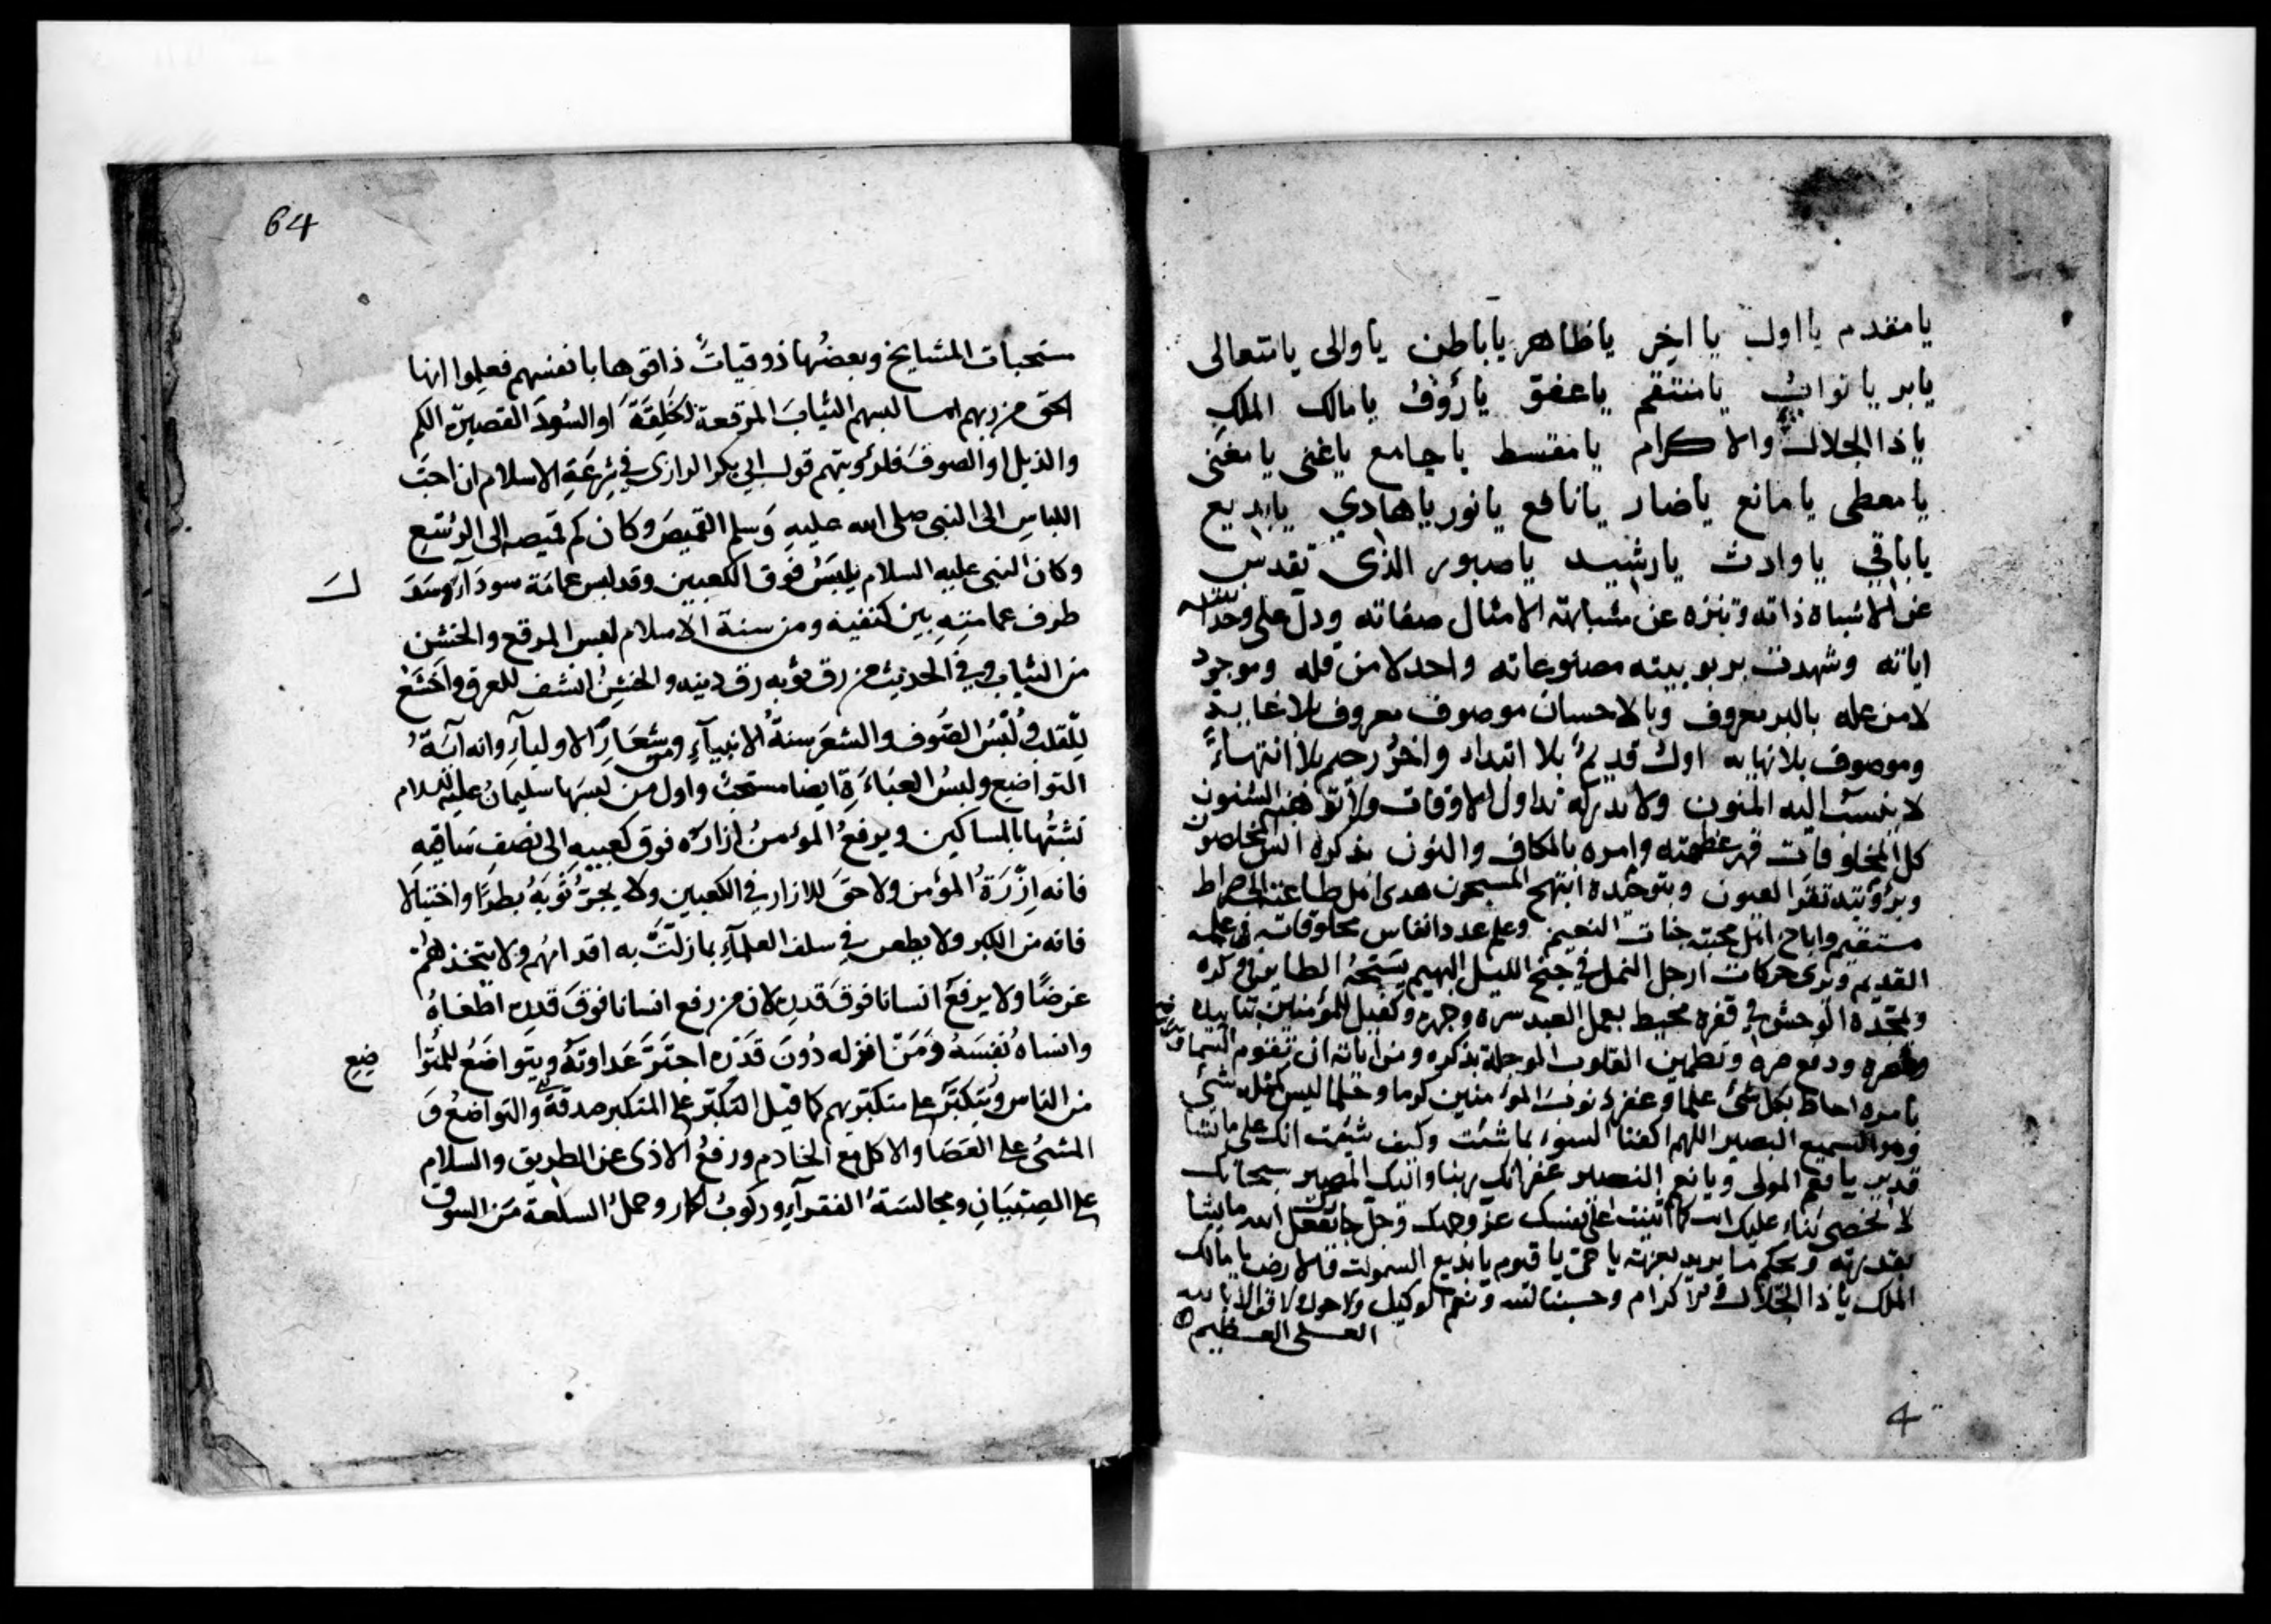 يا مقدم يا اول يا اخر يا ظاهر يا باطن يا والى يا متعالى
يا بر يا تواب يا منتقم يا عفو يا رؤف يا مالك الملك
يا ذا الجلال والاكرام يا مقسط يا جامع يا غنى يا مغنى
يا معطى يا مانع يا ضار يا نافع يا نور يا هادي يا بديع
يا باقي يا وارث يا رشيد يا صبور الذى تقدس
عن الاشباه ذاته وتنزه عن مشابهة الامثال صفاته ودل على وحدانيته
اياته وشهدت بربوبيته مصنوعاته واحد لا من قله وموجود
لا من عله بالبر معروف وبالاحسان موصوف معروف بلا غاية
وموصوف بلا نهايه اول قديم بلا ابتداء واخر رحيم بلا انتهاء
لا ينسب اليه البنون ولا تداول الاوقات ولا السنون
كل المخلوقات قهر عظمته وامره بالكاف والنون بذكره انس المخلصون
وبرؤيته تقر العيون وبتوحيده ابتهج المسبحون هدى اهل طاعته الى صراط
مستقيم واباح اهل محبته جنات النعيم وعلم عدد انفاس مخلوقاته في علمه
القديم ويرى حركات ارجل النمل في جنح الليل البهيم يسبحه الطاير في وكره
ويمجده الوحش في قفره محيط بعمل العبد سره وجهره وكفيل للمؤمنين بتاييده
ونصره وتطمين القلوب الوجلة بذكره ومن اياته ان تقوم السماء
بامره احاط بكل شئ علما وغفر ذنوب المؤمنين كرما وحلما ليس كمثله شئ
وهو السميع البصير اللهم اكفنا السوء بما شئت وكيف شئت انك على ما تشاء
قدير يا نعم المولى ويا نعم النصير غفرانك ربنا واليك المصير سبحانك
لا نحصى ثناء عليك انت كما اثنيت على نفسك عز وجهك وجل يفعل الله ما يشا
بقدرته ويحكم ما يريد بعزته يا حى يا قيوم يا بديع السموات والارض يا مالك
الملك يا ذا الجلال والاكرام وحسبنا الله ونعم الوكيل ولا حول ولا قوة الا بالله
العلى العظيم
4
64
مستحبات المشايخ وبعضها ذوقيات ذاقوها بانفسهم فعلموا انها
الحق من ربهم لبسهم الثياب المرقعة الخلقة او السود القصيرة الكم
والذيل او الصوف قول ابي بكر الرازى في شرعة الاسلام ان احب
اللباس الى النبى صلى الله عليه وسلم القميص وكان كم قميصه الى الرسغ
وكان النبى عليه السلام يلبس فوق الكعبين وقد لبس عمامة سودآء
طرف عمامته بين كتفيه ومن سنة الاسلام لبس المرقع والخشن
من الثياب وفي الحديث من رق ثوبه رق دينه والخشن انشف للعرق واخشع
للقلب ولبس الصوف والشعر سنة الانبيآء وشعار الاوليآء وانه آية
التواضع ولبس العباءة ايضا مستحب واول من لبسها سليمان عليه السلام
تشبها بالمساكين ويرفع المؤمن ازاره فوق كعبيه الى نصف ساقيه
فانه ازرة المؤمن ولا حق للازار في الكعبين ولا يجر ثوبه بطرا واختيالا
فانه من الكبر ولا يطعن في سلف العلمآء بما زلت به اقدامهم ولا يتخذهم
غرضا ولا يرفع انسانا فوق قدره لان من رفع انسانا فوق قدره اطغاه
وانساه نفسه ومن انزله دون قدره اجتر عداوته ويتواضع للمتوا
ضع
من الناس ويتكبر على متكبرهم كما قيل التكبر على المتكبر صدقة والتواضع و
المشى على العصا والاكل مع الخادم ورفع الاذى عن الطريق والسلام
على الصبيان ومجالسة الفقرآء وركوب الحمار وحمل السلعة من السوق